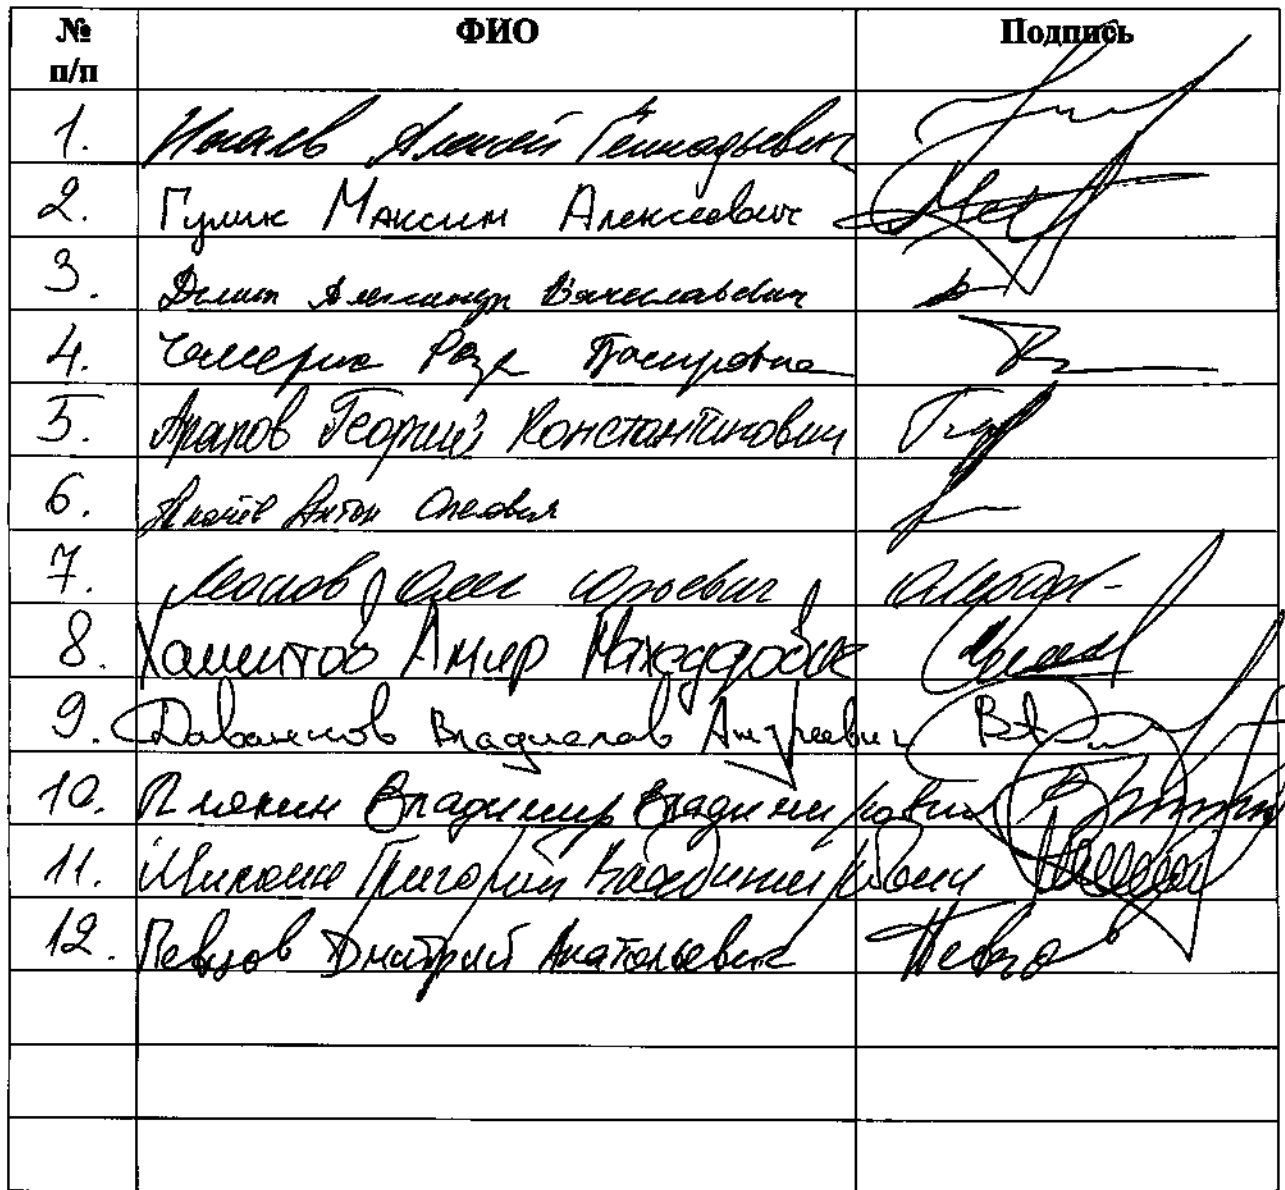 № п/п ФИО Подпись
1. Нечаев Алексей Геннадьевич
2. Гулин Максим Алексеевич
3. Дёмин Александр Вячеславович
4. Чемерис Роза Басировна
5. Арапов Георгий Константинович
6. Ткачёв Антон Олегович
7. Леонов Олег Юрьевич
8. Хамитов Амир Махсудович
9. Даванков Владислав Андреевич
10. Плякин Владимир Владимирович
11. Шилкин Григорий Владимирович
12. Певцов Дмитрий Анатольевич Певцов